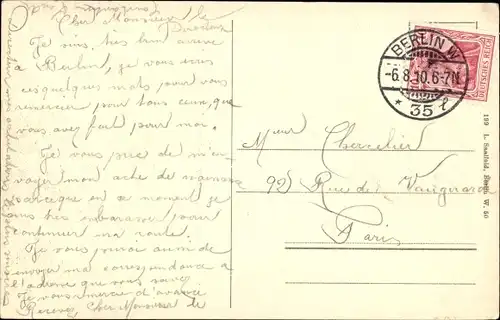 Cher Monsieur le
Directeur
Je suis très bien arrivé
à Berlin, je vous écris
ces quelques mots pour vous
remercier pour tous ceux, que
vous avez fait pour moi.
Je vous prie de m'en-
voyer mon acte de naissance
parceque en ce moment je
suis très embarassé pour
continuer ma route.
Je vous prirai aussi de
envoyer ma correspondance à
l'adresse que vous savez
Je vous remercie d'avance
Recevez Cher Monsieur le
BERLIN W
-6.8.10.6-7N
* 35 l
DEUTSCHES REICH
Monsieur
92 Rue de Vaugirard
Paris
199 L. Saalfeld, Berlin W. 50